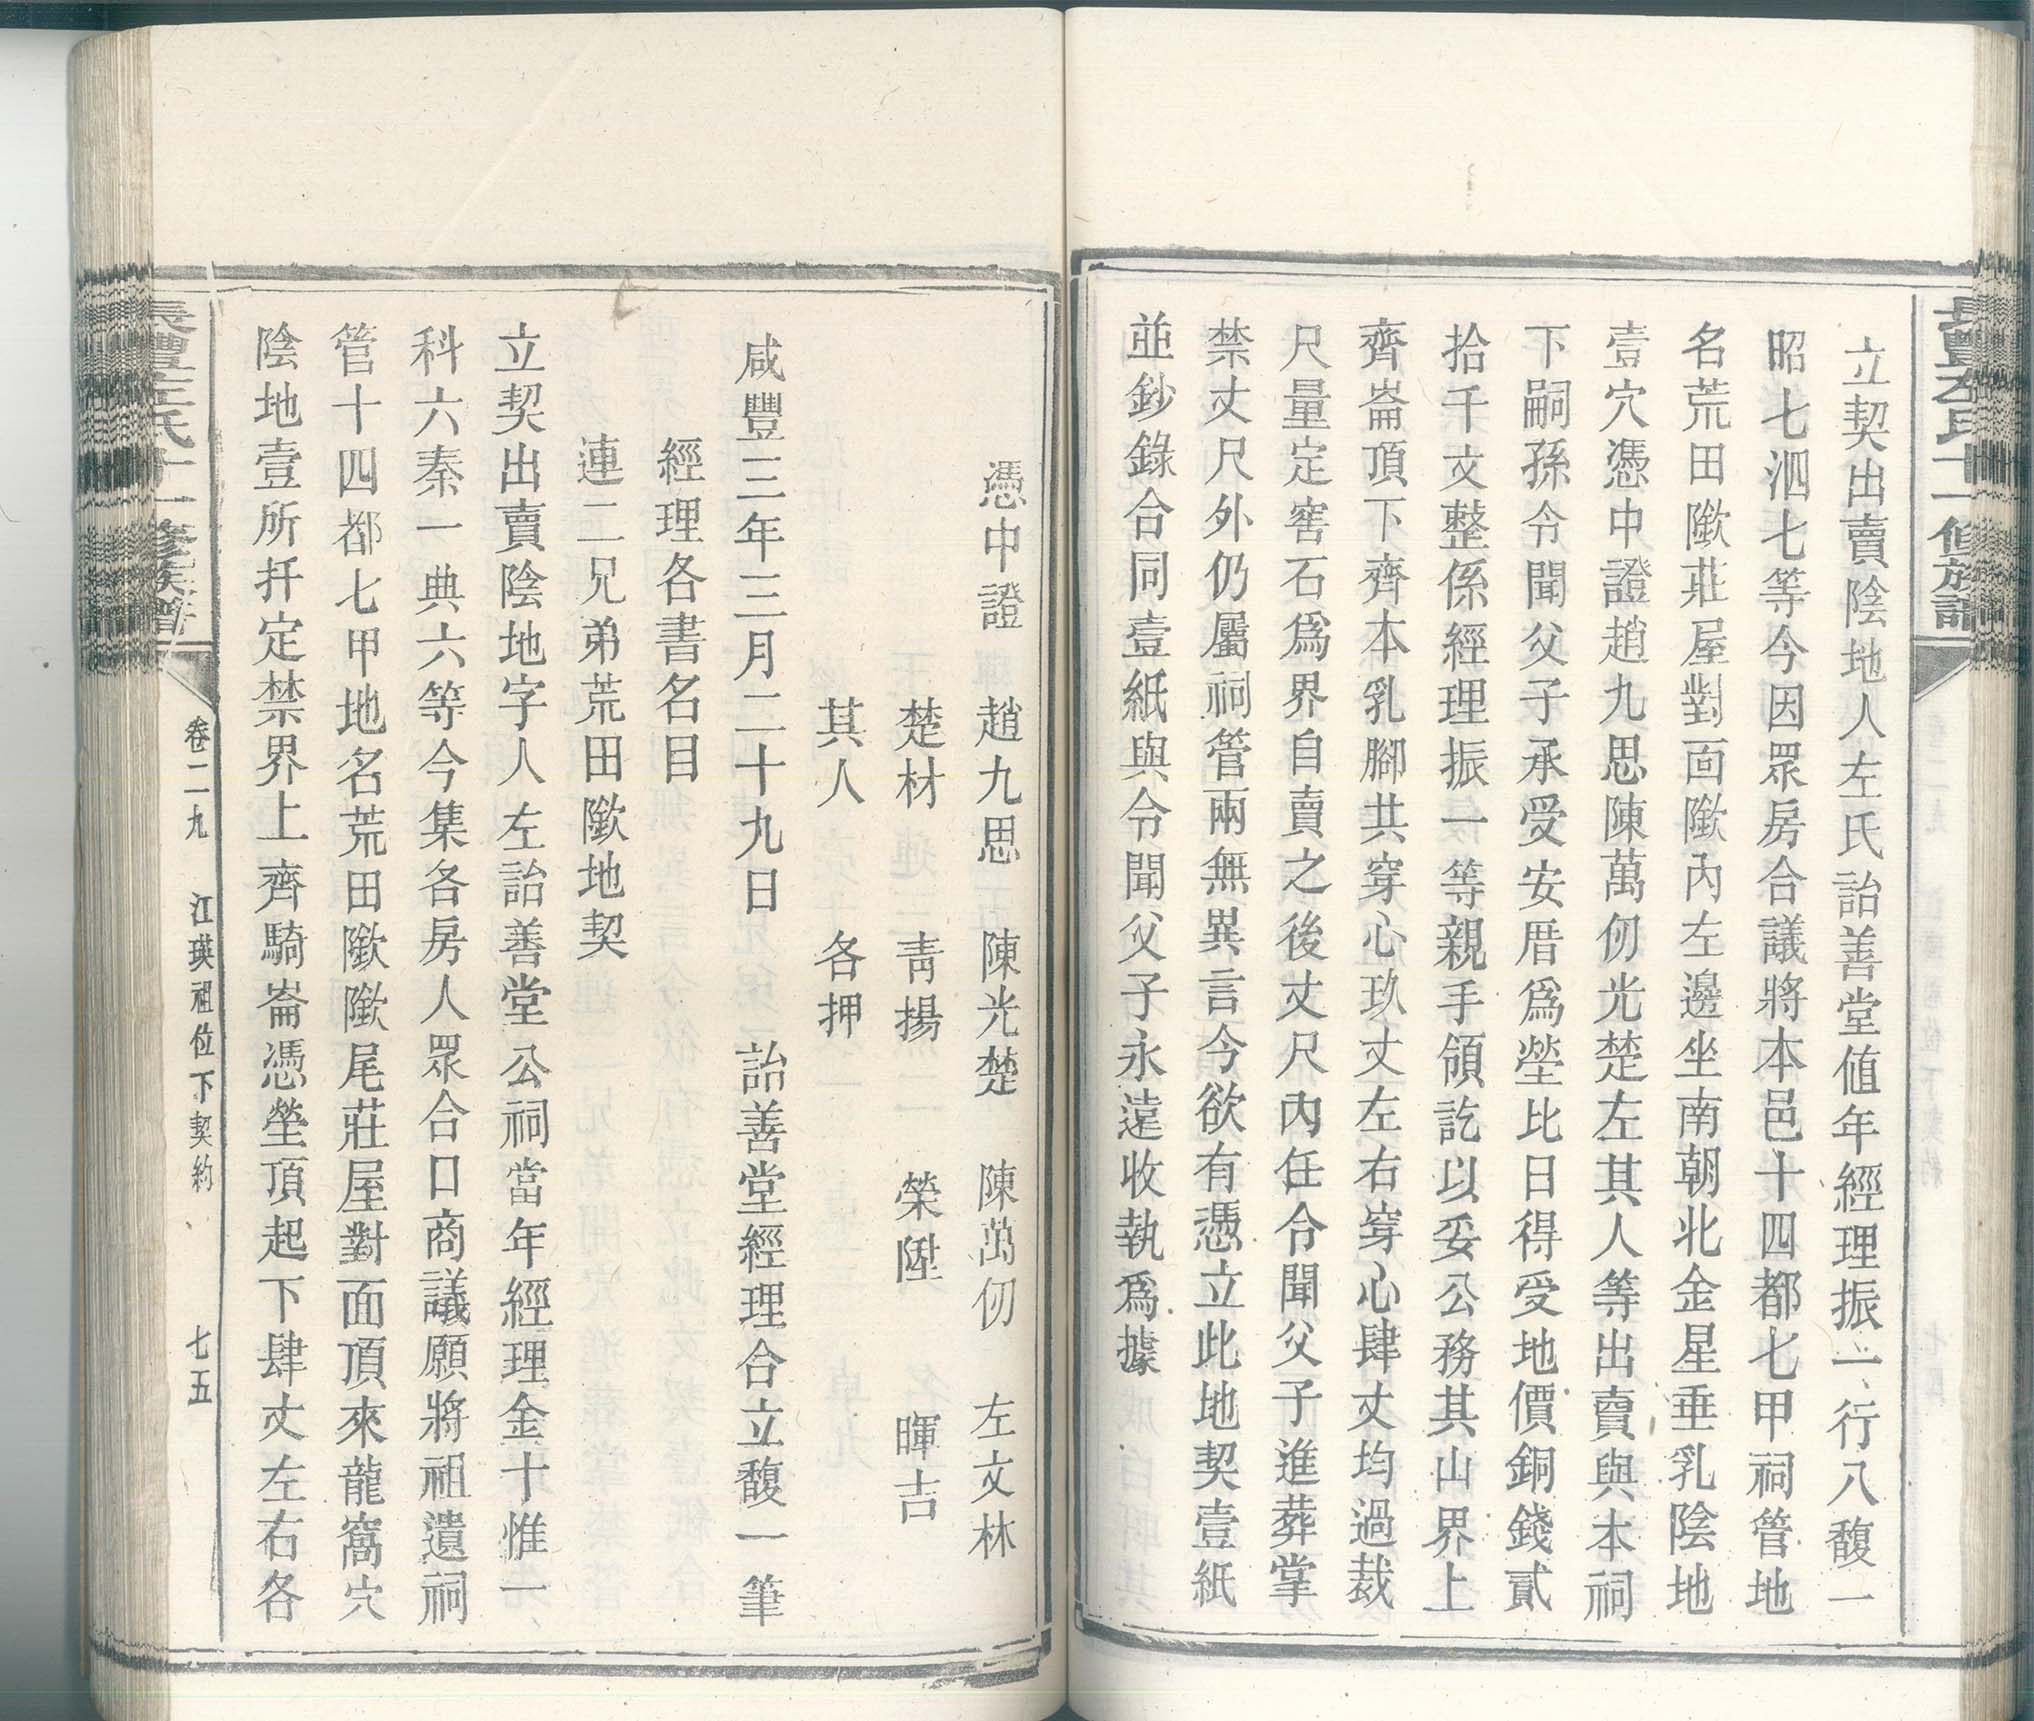 長豐左氏十一修族譜
立契出賣陰地人左氏詒善堂値年經理振一行八馥一
昭七泗七等今因眾房合議將本邑十四都七甲祠管地
名荒田歘莊屋對面歘內左邊坐南朝北金星垂乳陰地
壹穴憑中證趙九思陳萬仞光楚左其人等出賣與本祠
下嗣孫令聞父子承受安厝爲塋比日得受地價銅錢貳
拾千文整係經理振一等親手領訖以妥公務其山界上
齊崙頂下齊本乳腳共穿心玖丈左右穿心肆丈均過裁
尺量定窖石爲界自賣之後丈尺內任令聞父子進葬掌
禁丈尺外仍屬祠管兩無異言今欲有憑立此地契壹紙
並鈔錄合同壹紙與令聞父子永遠收執爲據
憑中證 趙九思 陳光楚 陳萬仞 左文林
楚材 靑揚 榮陞 暉吉
其人 各押
咸豐三年三月二十九日 詒善堂經理合立馥一筆
經理各書名目
連二兄弟荒田歘地契
立契出賣陰地字人左詒善堂公祠當年經理金十惟一
科六秦一典六等今集各房人眾合口商議願將祖遺祠
管十四都七甲地名荒田歘歘尾莊屋對面頂來龍窩穴
陰地壹所扦定禁界上齊騎崙憑塋頂起下肆丈左右各
長豐左氏十一修族譜 卷二九 江瑛祖位下契約 七五